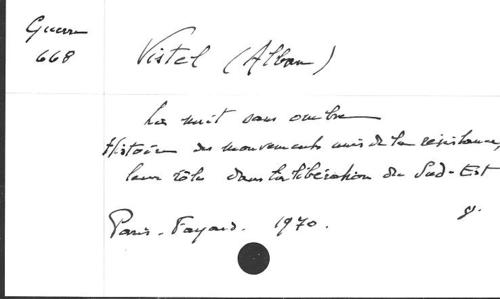 Guerre
668
Vistel (Alban)
La nuit sans ombre
Histoire des mouvements unis de la résistance,
leur rôle dans la libération du Sud-Est
Paris-Fayard. 1970.